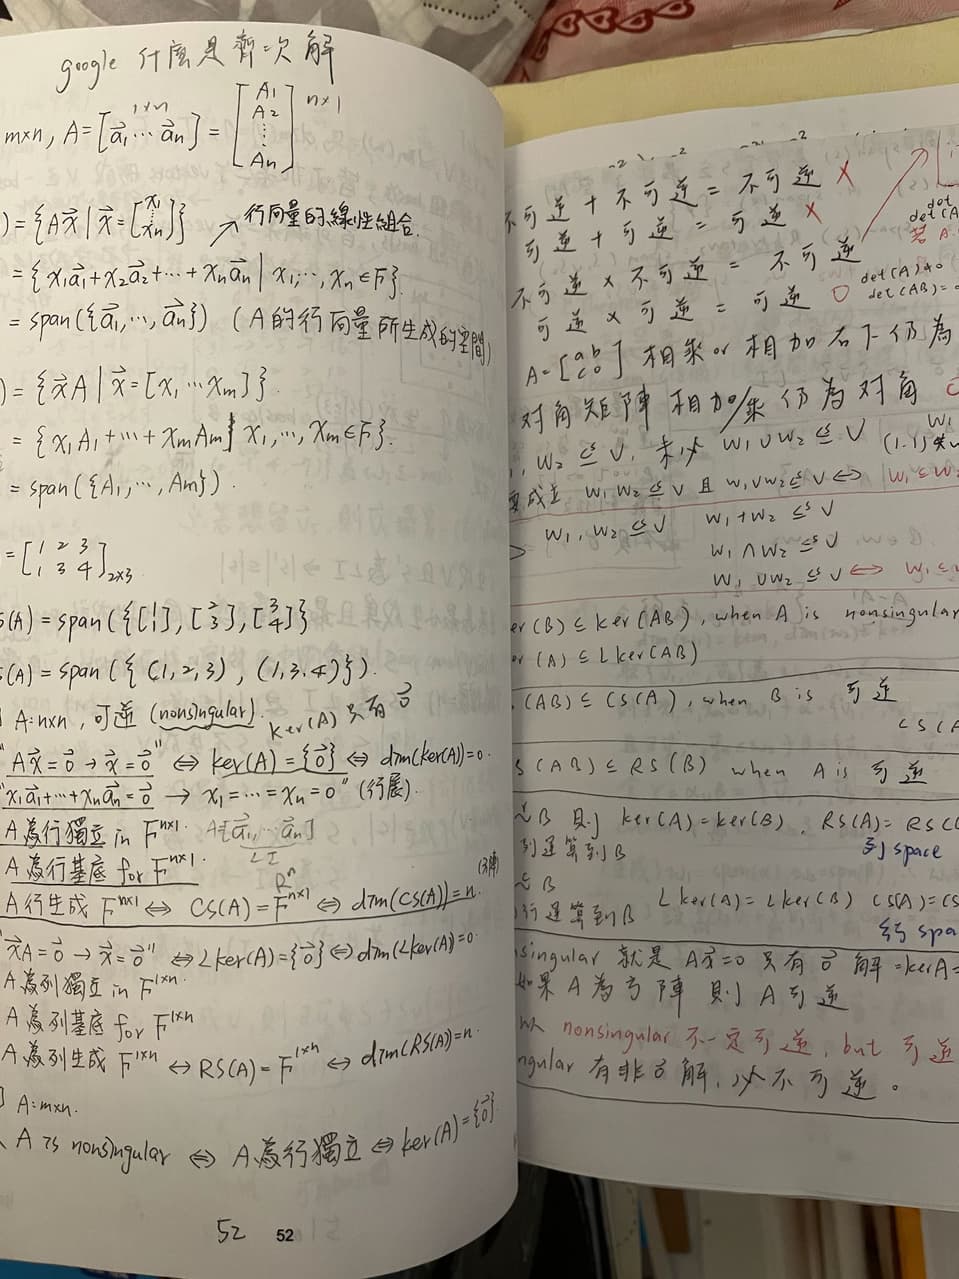 google 什麼是齊次解
m×n, A = [a⃗₁ ⋯ a⃗ₙ] = [A₁ A₂ ⋮ Aₙ] n×1
1×n
) = {Ax⃗ | x⃗ = [x₁ ⋮ xₙ]}
行向量的線性組合.
= {x₁a⃗₁+x₂a⃗₂+⋯+xₙa⃗ₙ | x₁,⋯,xₙ∈F}.
= span({a⃗₁,⋯,a⃗ₙ}) (A的行向量所生成的空間)
) = {x⃗A | x⃗ = [x₁ ⋯ xₘ]}.
= {x₁A₁+⋯+xₘAₘ | x₁,⋯,xₘ∈F}.
= span({A₁,⋯,Aₘ}).
= [1 2 3 1 3 4]₂ₓ₃
S(A) = span({[1 1],[2 3],[3 4]})
S(A) = span({(1,2,3), (1,3,4)}).
A:n×n, 可逆 (nonsingular). ker(A) 只有 0⃗
"Ax⃗=0⃗ → x⃗=0⃗" ⇔ ker(A)={0⃗} ⇔ dim(ker(A))=0.
"x₁a⃗₁+⋯+xₙa⃗ₙ=0⃗ → x₁=⋯=xₙ=0" (行展)
A為行獨立 in Fⁿˣ¹. A=[a⃗₁ ⋯ a⃗ₙ]
LI
A為行基底 for Fⁿˣ¹.
Rⁿ
A行生成 Fⁿˣ¹ ⇔ CS(A)=Fⁿˣ¹ ⇔ dim(CS(A))=n.
"x⃗A=0⃗ → x⃗=0⃗" ⇔ Lker(A)={0⃗} ⇔ dim(Lker(A))=0
A為列獨立 in F¹ˣⁿ.
A為列基底 for F¹ˣⁿ
A為列生成 F¹ˣⁿ ⇔ RS(A)=F¹ˣⁿ ⇔ dim(RS(A))=n.
A:m×n.
A is nonsingular ⇔ A為行獨立 ⇔ ker(A)={0⃗}
52
52
不可逆 + 不可逆 = 不可逆 X
可逆 + 可逆 = 可逆 X
det
det(A
若 A.
不可逆 × 不可逆 = 不可逆
det(A)≠0
det(AB)=
可逆 × 可逆 = 可逆 O
A=[ab c0] 相乘 or 相加 右下仍為
對角矩陣 相加/乘 仍為對角
, W₂ ⊆ V, 未必 W₁∪W₂ ⊆ V (1-1)
W₁
成立 W₁,W₂ ⊆ V 且 W₁∪W₂ ⊆ V ⇔ W₁⊆W₂
W₁, W₂ ≤ V W₁+W₂ ≤ V
W₁∩W₂ ≤ V
W₁∪W₂ ≤ V ⇔ W₁⊆
er(B) ⊆ ker(AB), when A is nonsingular
er(A) ⊆ Lker(AB)
(AB) ⊆ CS(A), when B is 可逆
CS(A
S(AB) ⊆ RS(B) when A is 可逆
B 則 ker(A)=ker(B), RS(A)=RS(
列運算到B 列 space
B Lker(A)=Lker(B) CS(A)=CS
行運算到B 行 spa
singular 就是 Ax⃗=0 只有 0⃗ 解 =kerA=
如果 A 為方陣 則 A 可逆
nonsingular 不一定可逆, but 可逆
ngular 有非0⃗解, 必不可逆。